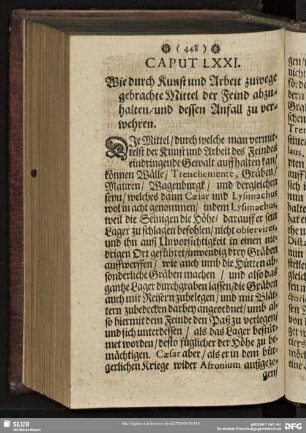 ( 448 )
CAPUT LXXI.
Wie durch Kunst und Arbeit zuwege
gebrachte Mittel der Feind abzu-
halten / und dessen Anfall zu ver-
wehren.
DJe Mittel / durch welche man vermit-
telst der Kunst und Arbeit des Feindes
eindringende Gewalt auffhalten kan /
können Wälle / Trenchemente, Gräben /
Mauren / Wagenburgt / und dergleichen
seyn / welches dann Cæsar und Lysimachus
wol in acht genommen / indem Lysimachus,
weil die Seinigen die Höhe / darauff er sein
Lager zu schlagen befohlen / nicht observiret,
und ihn aus Unvorsichtigkeit in einen nie-
drigen Ort geführet / inwendig drey Gräben
auffwerffen / wie auch umb die Hütten ab-
sonderliche Gräben machen / und also das
gantze Lager durchgraben lassen / die Gräben
auch mit Reisern zubelegen / und mit Blät-
tern zubedecken darbey angeordnet / und al-
so hiermit dem Feinde den Paß zu verlegen /
und sich unterdessen / als das Lager bestür-
met worden / desto füglicher der Höhe zu be-
mächtigen. Cæsar aber / als er in dem bür-
gerlichen Kriege wider Afronium auffgezo-
gen /
SLUB
Wir führen Wissen.